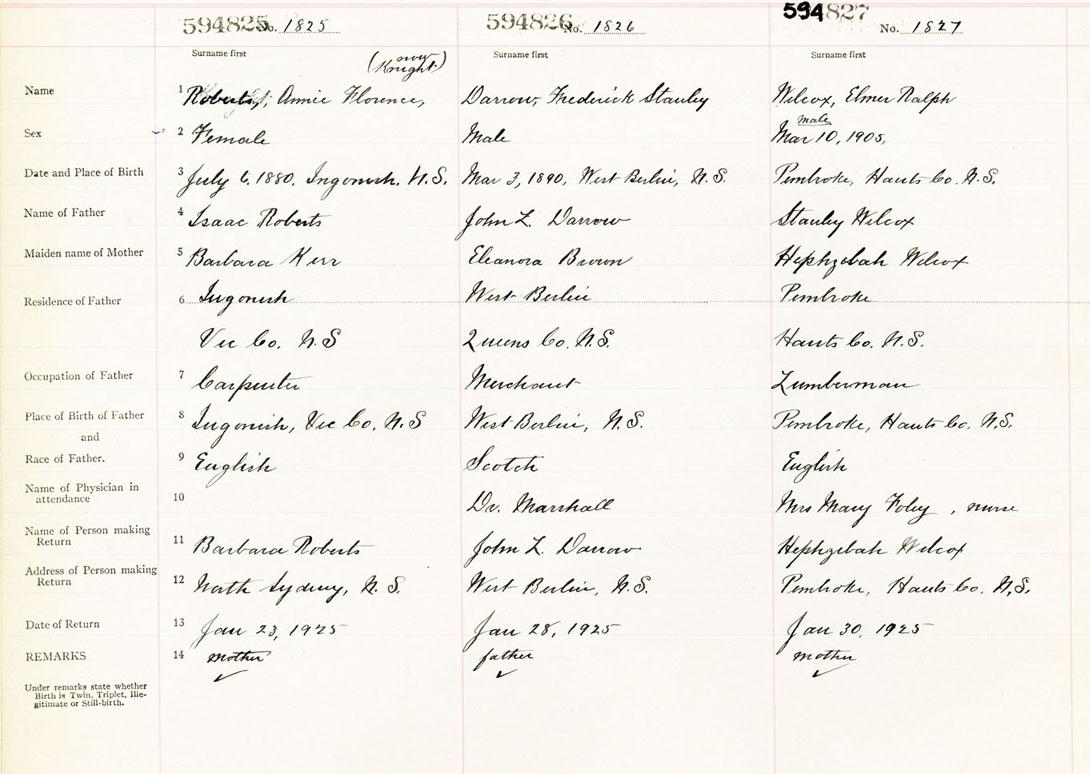 594825 No. 1825
594826 No. 1826
594827 No. 1827
Surname first
Surname first
Surname first
(now Knight)
Name
1 Roberts, Annie Florence,
Darrow, Frederick Stanley
Wilcox, Elmer Ralph
Sex
2 Female
Male
male
Mar 10, 1905,
Date and Place of Birth
3 July 6, 1880, Ingonish, N.S.
Mar 3, 1890, West Berlin, N.S.
Pembroke, Hants Co. N.S.
Name of Father
4 Isaac Roberts
John L. Darrow
Stanley Wilcox
Maiden name of Mother
5 Barbara Kerr
Eleanora Brown
Hephzebah Wilcox
Residence of Father
6 Ingonish
West Berlin
Pembroke
Vic Co. N.S
Queens Co. N.S.
Hants Co. N.S.
Occupation of Father
7 Carpenter
Merchant
Lumberman
Place of Birth of Father
8 Ingonish, Vic Co. N.S
West Berlin, N.S.
Pembroke, Hants Co. N.S.
and
Race of Father.
9 English
Scotch
English
Name of Physician in
attendance
10
Dr. Marshall
Mrs Mary Foley, nurse
Name of Person making
Return
11 Barbara Roberts
John L. Darrow
Hephzebah Wilcox
Address of Person making
Return
12 North Sydney, N.S.
West Berlin, N.S.
Pembroke, Hants Co. N.S.
Date of Return
13 Jan 23, 1925
Jan 28, 1925
Jan 30, 1925
REMARKS
14 mother
father
mother
Under remarks state whether
Birth is Twin, Triplet, Ille-
gitimate or Still-birth.